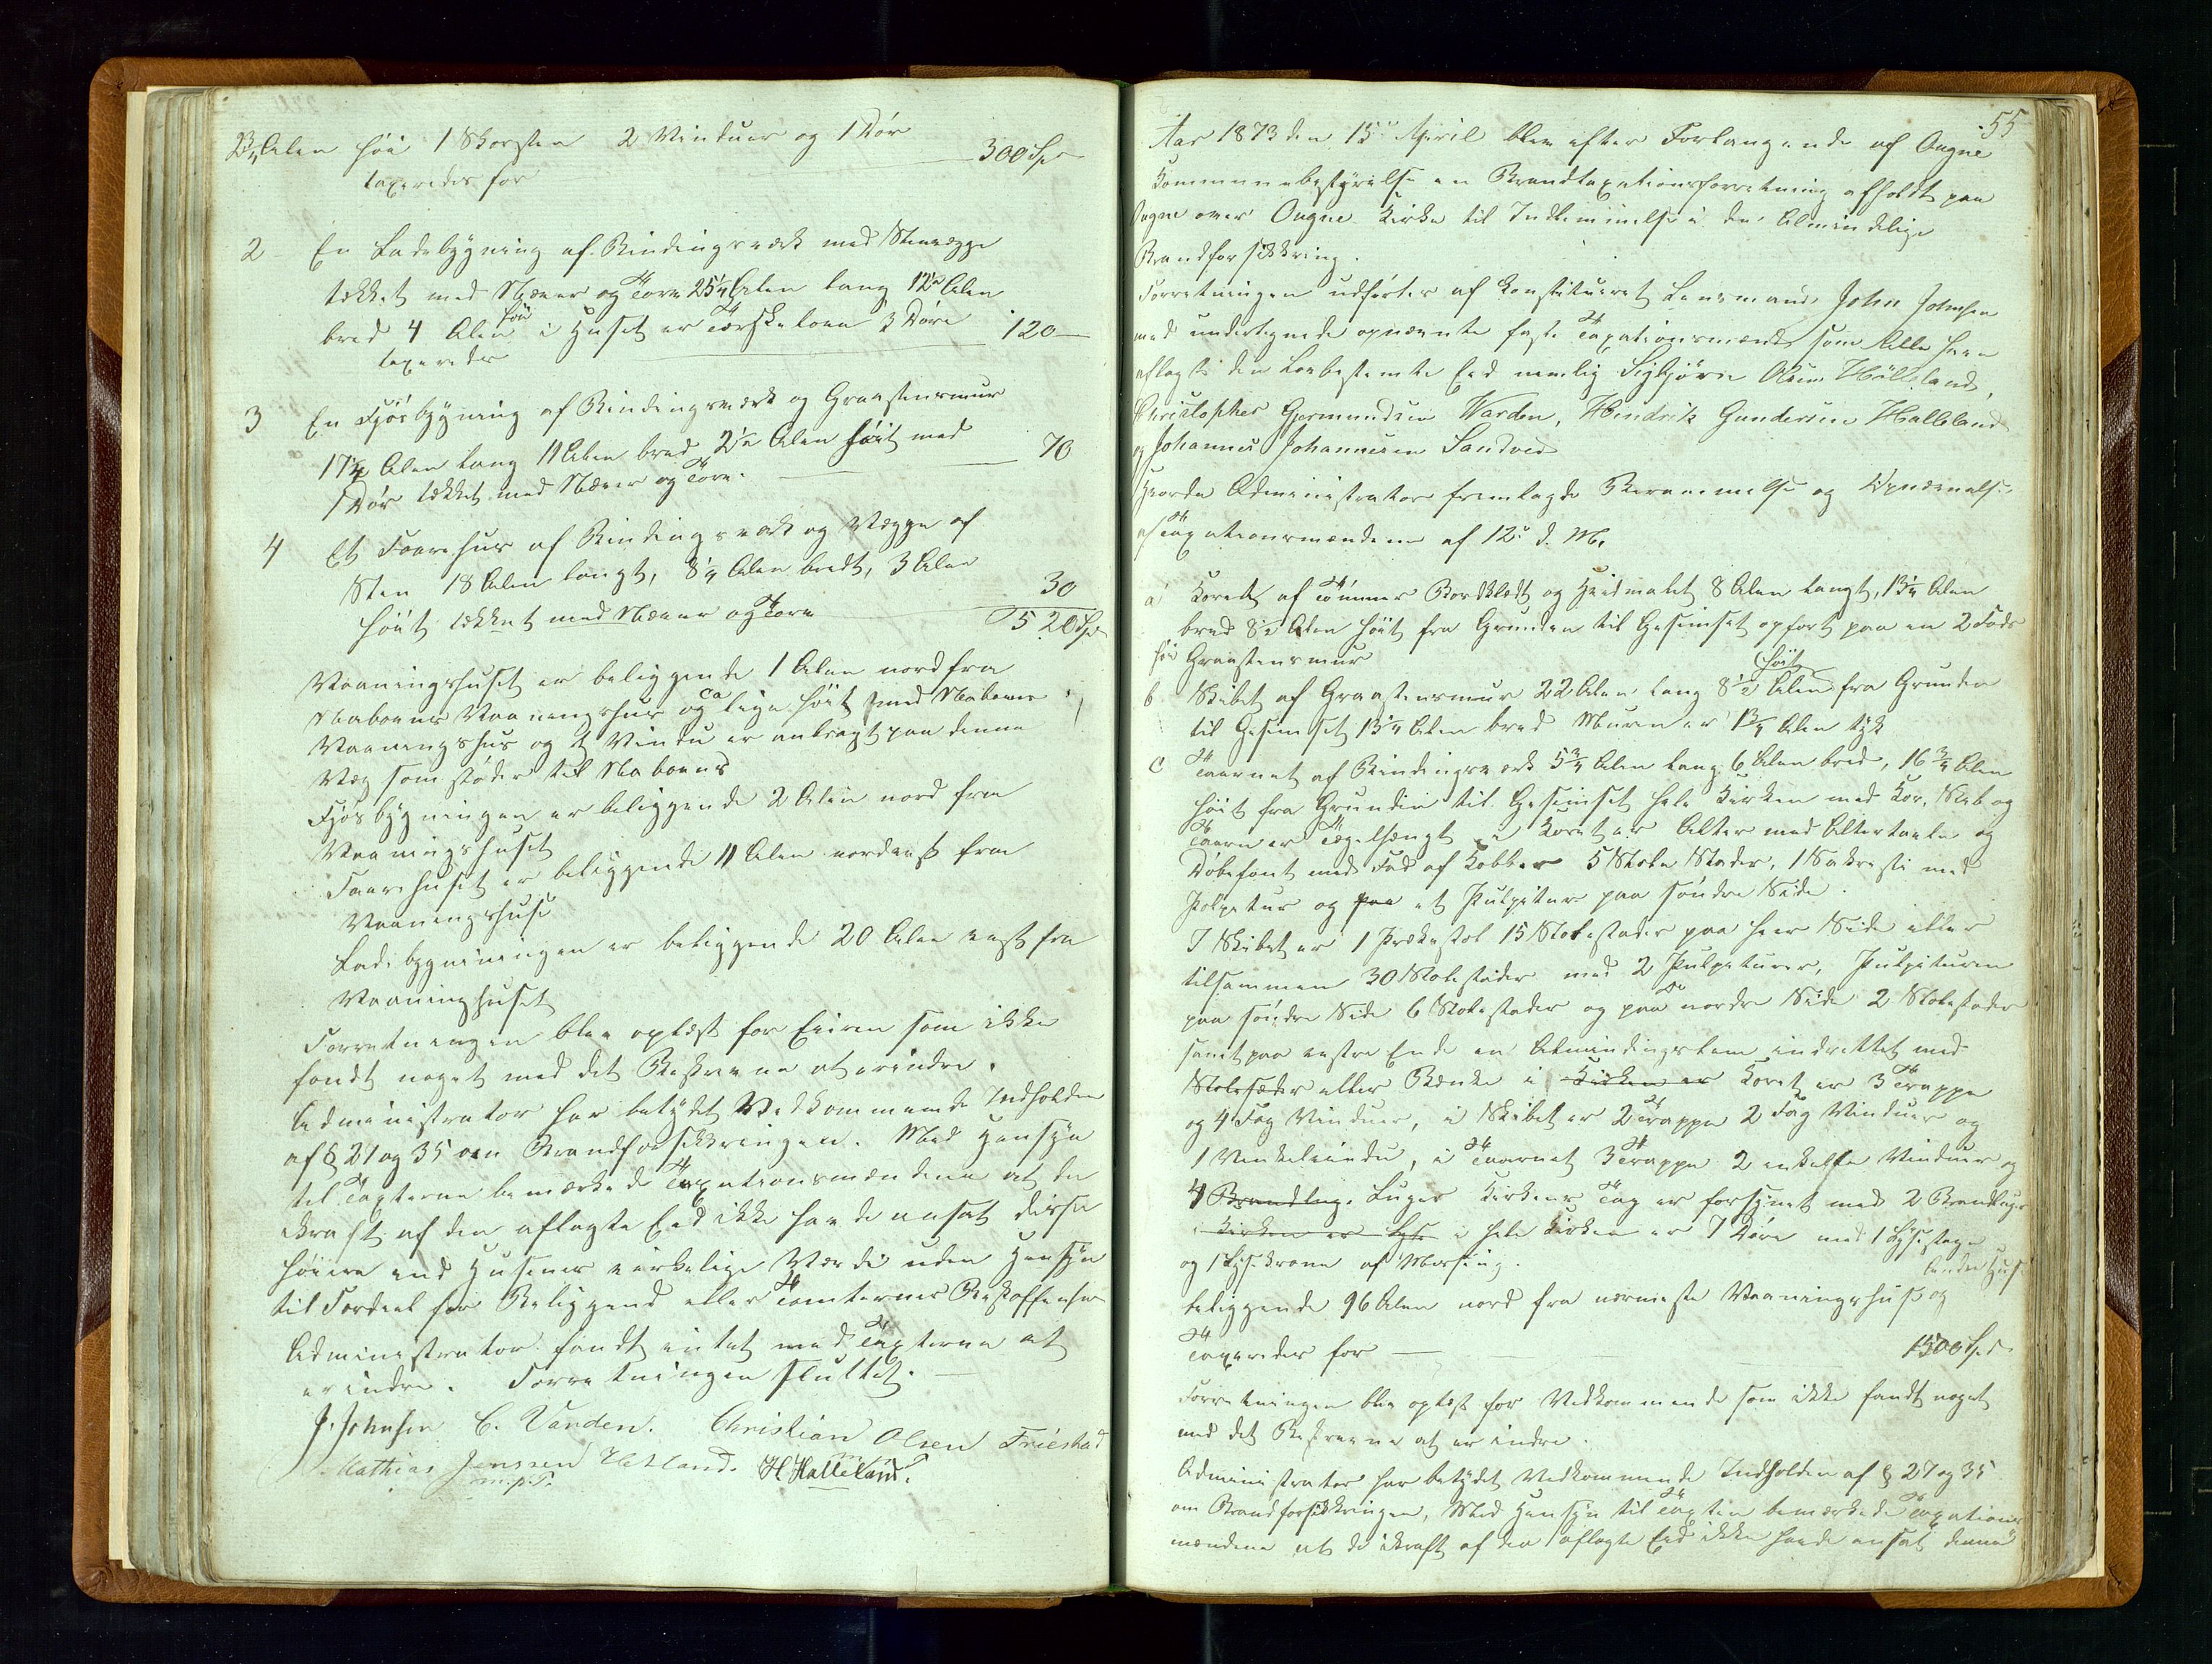 2¾ Alen høi 1 Skorsten 2 Vinduer og 1 Dør
taxeredes for 300 Spd
2 En Ladebygning af Bindingsværk med Stenvægge
tækket med Næver og Torv 25¼ Alen lang 12½ Alen
bred 4 Alen høi i Huset er Tærskeloen 3 Døre
taxeredes 120
3 En Fjøsbygning af Bindingsværk og Graastensmur
17¼ Alen lang 11 Alen bred 2½ Alen høit med
1 Dør tækket med Næver og Torv. 70
4 Et Faarehus af Bindingsværk og Vægge af
Sten 18 Alen langt, 8¼ Alen bredt, 3 Alen
høit tækket med Næver og Torv 30
520 Spd
Vaaningshuset er beliggende 1 Alen nord fra
Naboens Vaaningshus og ca lige høit med Naboens
Vaaningshus og et Vindu er anbragt paa denne
Væg som støder til Naboens
Fjøsbygningen er beliggende 2 Alen nord fra
Vaaningshuset
Faarehuset er beliggende 11 Alen nordvest fra
Vaaningshuse
Ladebygningen er beliggende 20 Alen vest fra
Vaaninghuset
Forretningen blev oplæst for Eieren som ikke
fandt noget med det Beskrevne at erindre.
Administrator har betydet Vedkommende Indholden
af § 27 og 35 om Brandforsikkringen. Med Hensyn
til Taxterne bemærkede Taxationsmændene at de
ikraft af den aflagte Eed ikke havde ansat disse
høiere end Husenes virkelige Værdi uden Hensyn
til Fordeel for Beliggend eller Tomternes Beskaffenhe
Administrator fandt intet med Taxterne at
erindre. Forretningen sluttet.
J. Johnsen C. Varden. Christian Olsen Friestad
Mathias Jenssen Hetland. H Halleland.
m.p.P.
55
Aar 1873 den 15de April blev efter Forlangende af Ougne
Kommunebestyrelse en Brandtaxationsforretning afholdt paa
Ougne over Ougne Kirke til Indlemmelse i den Almindelige
Brandforsikkring.
Forretningen udførtes af konstitueret Lensmand John Johnsen
med undertegnede opnævnte faste Taxationsmænd som Alle have
aflagt den Lovbestemte Eed nemlig Sigbjørn Olsen Hølleland,
Christopher Gjermundsen Varden, Hendrik Gundersen Halleland
og Johannes Johannesen Sandved
Hvorda Administrator fremlagde Berammelse og Opnævnelse
af Taxationsmændene af 12te d. M.
a Koret af Tømmer Bordklædt og Hvidmalet 8 Alen langt, 13¼ Alen
bred 8½ Alen høit fra Grunden til Gesimset opført paa en 2 Fods
høi Graastensmur
b Skibet af Graastensmur 22 Alen lang 8½ Alen høit fra Grunden
til Gesimset 13¼ Alen bred Muren er 1¾ Alen tyk
c Taarnet af Bindingsværk 5¾ Alen lang 6 Alen bred, 16¾ Alen
høit fra Grunden til Gesimset hele Kirken med Kor, Skib og
Taarn er Tegelhængt i Koret er Alter med Altertavle og
Døbefont med Fad af Kobber 5 Stole Stader, 1 Sakresti med
Pulpetur og paa et Pulpitur paa søndre Side.
I Skibet er 1 Prækestol 15 Stolestader paa hver Side eller
tilsammen 30 Stolestader med 2 Pulpeturer, Pulpituren
paa søndre Side 6 Stolestader og paa nordre Side 2 Stolestader
samt paa vestre Ende en Almindingslem indrettet med
Stolesæder eller Bænke i Kirken er Koret er 3 Trappe
og 4 Fag Vinduer, i Skibet er 2 Trappe 2 Fag Vinduer og
1 Vinkelvindu, i Taarnet 3 Trappe 2 enkelte Vinduer og
4 Brandluge. Luger Kirkens Tag er forsynet med 2 Brandluger
i Kirken er Lyse i hele Kirken er 7 Døre med 1 Lysestage
og 1 Lysekrone af Messing.
beliggende 96 Alen nord fra nærmeste Vaaningshus og andre Huse
Taxeredes for 1500 Spd
Forretningen blev oplæst for Vedkommende som ikke fandt noget
med det Beskrevne at erindre.
Administrator har betydet Vedkommende Indholden af § 27 og 35
om Brandforsikkringen, Med Hensyn til Taxten bemærkede Taxations
mændene at de ikraft af den aflagte Eed ikke havde ansat denne